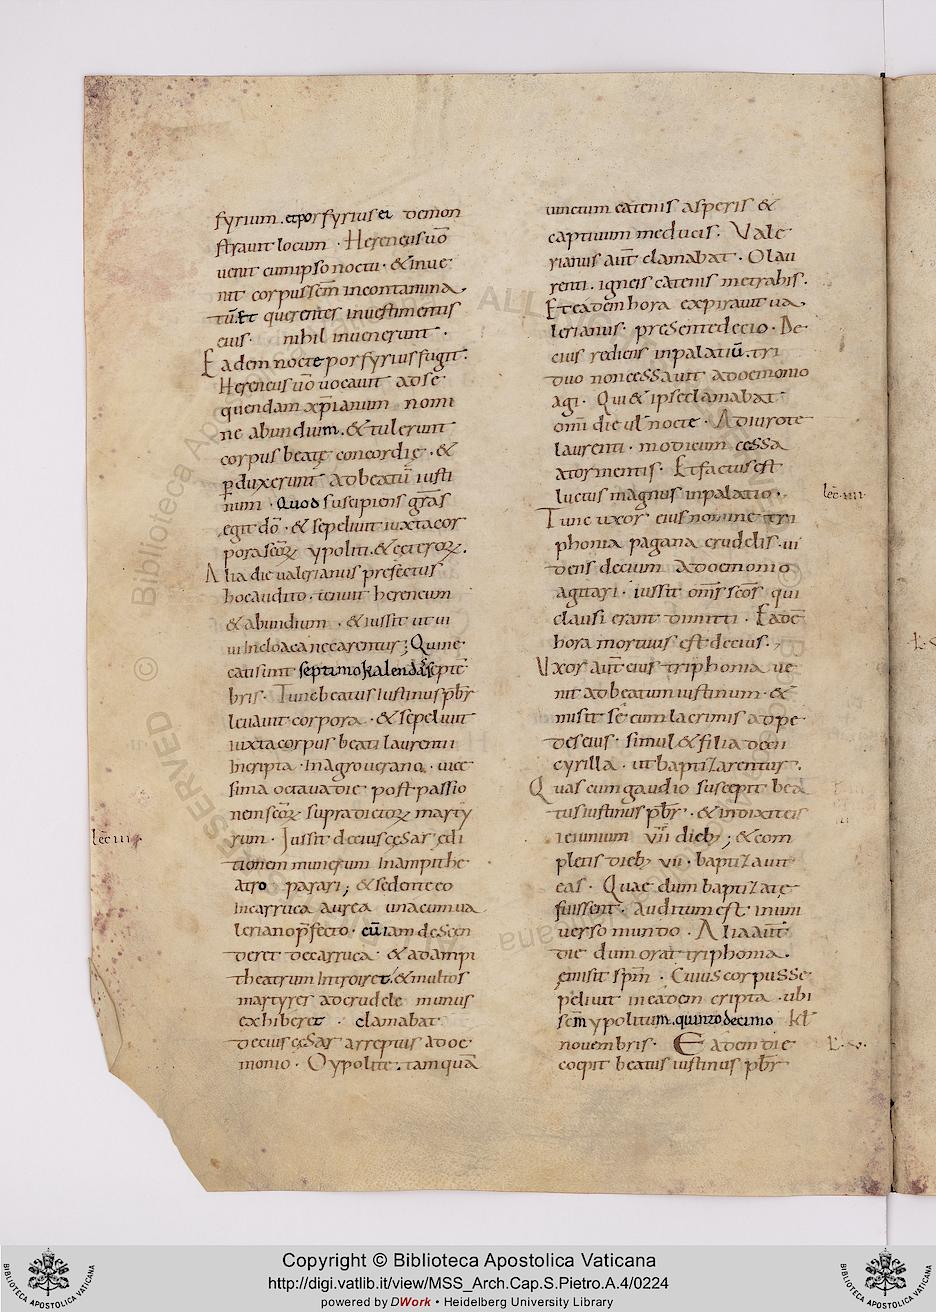 fyrium . et porfyrius ei demon
strauit locum . Hereneus u̅o
uenit cum ipso noctu . & inue
nit corpus sc̅m incontamina
tu̅. Et querentes in uestimentis
eius . nihil inuenerunt .
Eadem nocte porfyrius fugit .
Hereneus u̅o uocauit ad se
quendam xp̅ianum nomi
ne abundium . & tulerunt
corpus beatę concordię . &
ꝑduxerunt ad beatu̅ iusti
num . Quod suscipiens gr̅as
egit do̅ . & sepeliuit iuxta cor
pora sc̅oꝝ ypoliti . & ceteroꝝ .
Alia die ualerianus prefectus
hoc audito . tenuit hereneum
& abundium . & iussit ut ui
ui in cloaca necarentur ; Qui ne
cati sunt septimo kalendas septe̅
bris . Tunc beatus iustinus pb̅r
leuauit corpora . & sepeliuit
iuxta corpus beati laurentii
In cripta . In agro uerano . uice
sima octaua die post passio
nem sc̅oꝝ supradictoꝝ marty
lec̅ III .
rum . Iussit decius cęsar ędi
tionem munerum In ampithe
atro parari ; & sedente eo
In carruca aurea una cum ua
leriano p̅fecto . cu̅ iam descen
deret de carruca . & ad ampi
theatrum Introiret , & multos
martyres ad crudele munus
exhiberet . clamabat
decius cęsar arreptus a doe
monio . O ypolite . tamqua̅
uinctum catenis asperis &
captiuum me ducis . Vale
rianus aut̅ clamabat . O lau
renti . igneis catenis me trahis .
Et eadem hora expirauit ua
lerianus . presente decio . De
cius rediens in palatiu̅ . tri
duo non cessauit a doemonio
agi . Qui & ipse clamabat
omi̅ die ul̅ nocte . Adiuro te
laurenti . modicum cessa
a tormentis . Et factus est
luctus magnus in palatio .
lec̅ . IIII .
Tunc uxor eius nomine tri
phonia pagana crudelis . ui
dens decium a doemonio
agitari . iussit om̅s sc̅os qui
clausi erant dimitti . Eade̅
hora mortuus est decius .
Vxor aut̅ eius triphonia ue
nit ad beatum iustinum . &
misit se̅ cum lacrimis ad pe
des eius . simul & filia decii
cyrilla . ut baptizarentur .
Quas cum gaudio suscepit bea
tus iustinus pb̅r . & indixit eis
ieiunium VII dieb; ; & com
pletis dieb; VII . baptizauit
eas . Quae dum baptizatę
fuissent . auditum est in uni
uerso mundo . Alia aut̅
die dum orat triphonia .
emisit sp̅m . Cuius corpus se
peliuit in eadem cripta . ubi
sc̅m ypolitum . quinto decimo kl̅
nouembris . Eadem die
coepit beatus iustinus pb̅r
Copyright © Biblioteca Apostolica Vaticana
http://digi.vatlib.it/view/MSS_Arch.Cap.S.Pietro.A.4/0224
powered by DWork • Heidelberg University Library